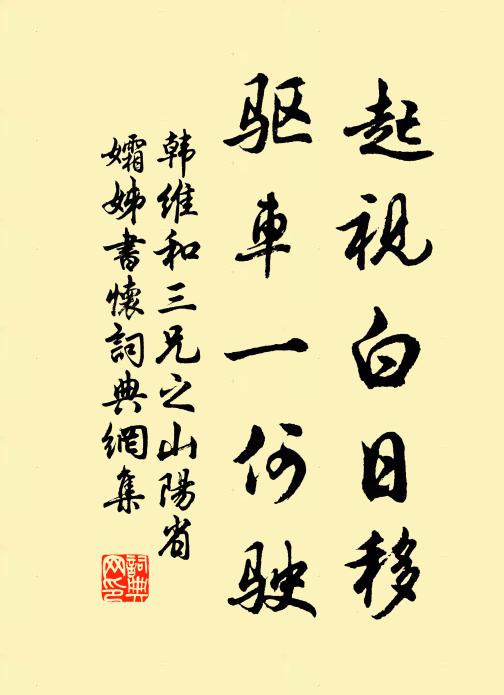 起視白日移
驱車一何駛
韩維和三兄之山陽省
孀姊書懷詞典網集
詞典
网印